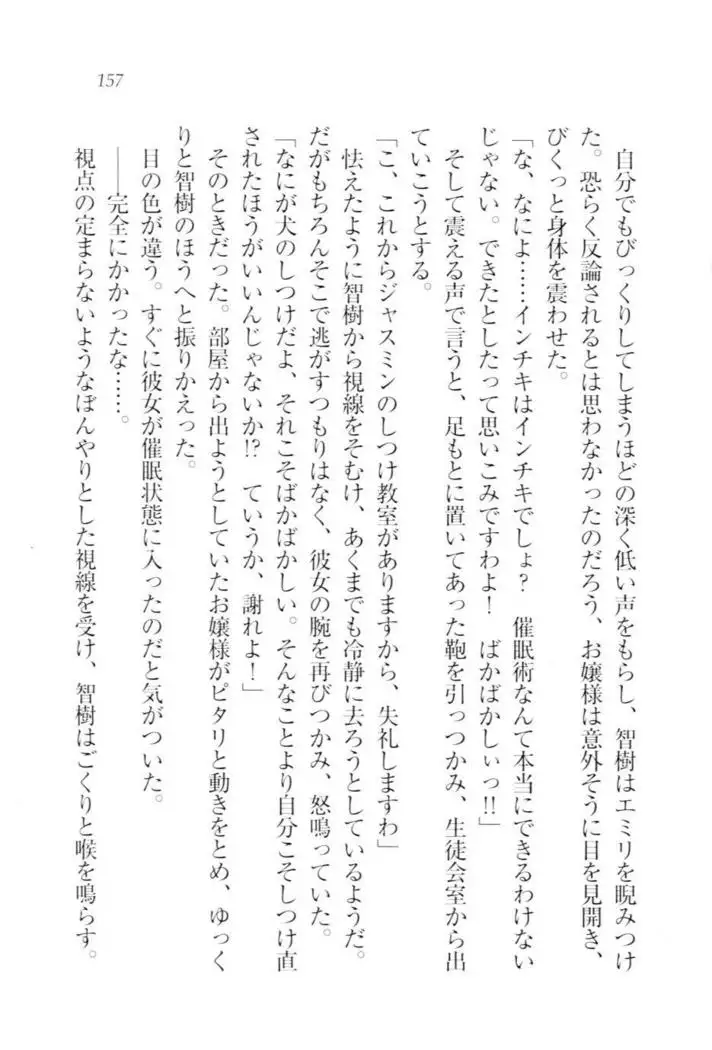 157
自分でもびっくりしてしまうほどの深く低い声をもらし、智樹はエミリを睨みつけ
た。恐らく反論されるとは思わなかったのだろう、お嬢様は意外そうに目を見開き、
びくっと身体を震わせた。
「な、なによ……インチキはインチキでしょ？　催眠術なんて本当にできるわけない
じゃない。できたとしたって思いこみですわよ！　ばかばかしぃっ!!」
そして震える声で言うと、足もとに置いてあった鞄を引っつかみ、生徒会室から出
ていこうとする。
「こ、これからジャスミンのしつけ教室がありますから、失礼しますわ」
怯えたように智樹から視線をそむけ、あくまでも冷静に去ろうとしているようだ。
だがもちろんそこで逃がすつもりはなく、彼女の腕を再びつかみ、怒鳴っていた。
「なにが犬のしつけだよ、それこそばかばかしい。そんなことより自分こそしつけ直
されたほうがいいんじゃないか!?　ていうか、謝れよ！」
そのときだった。部屋から出ようとしていたお嬢様がピタリと動きをとめ、ゆっく
りと智樹のほうへと振りかえった。
目の色が違う。すぐに彼女が催眠状態に入ったのだと気がついた。
――完全にかかったな……。
視点の定まらないようなぼんやりとした視線を受け、智樹はごくりと喉を鳴らす。